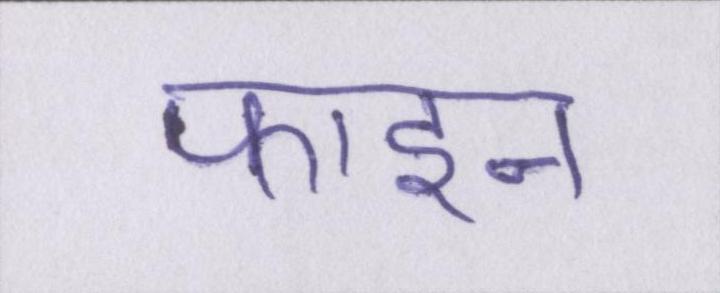 फाइन